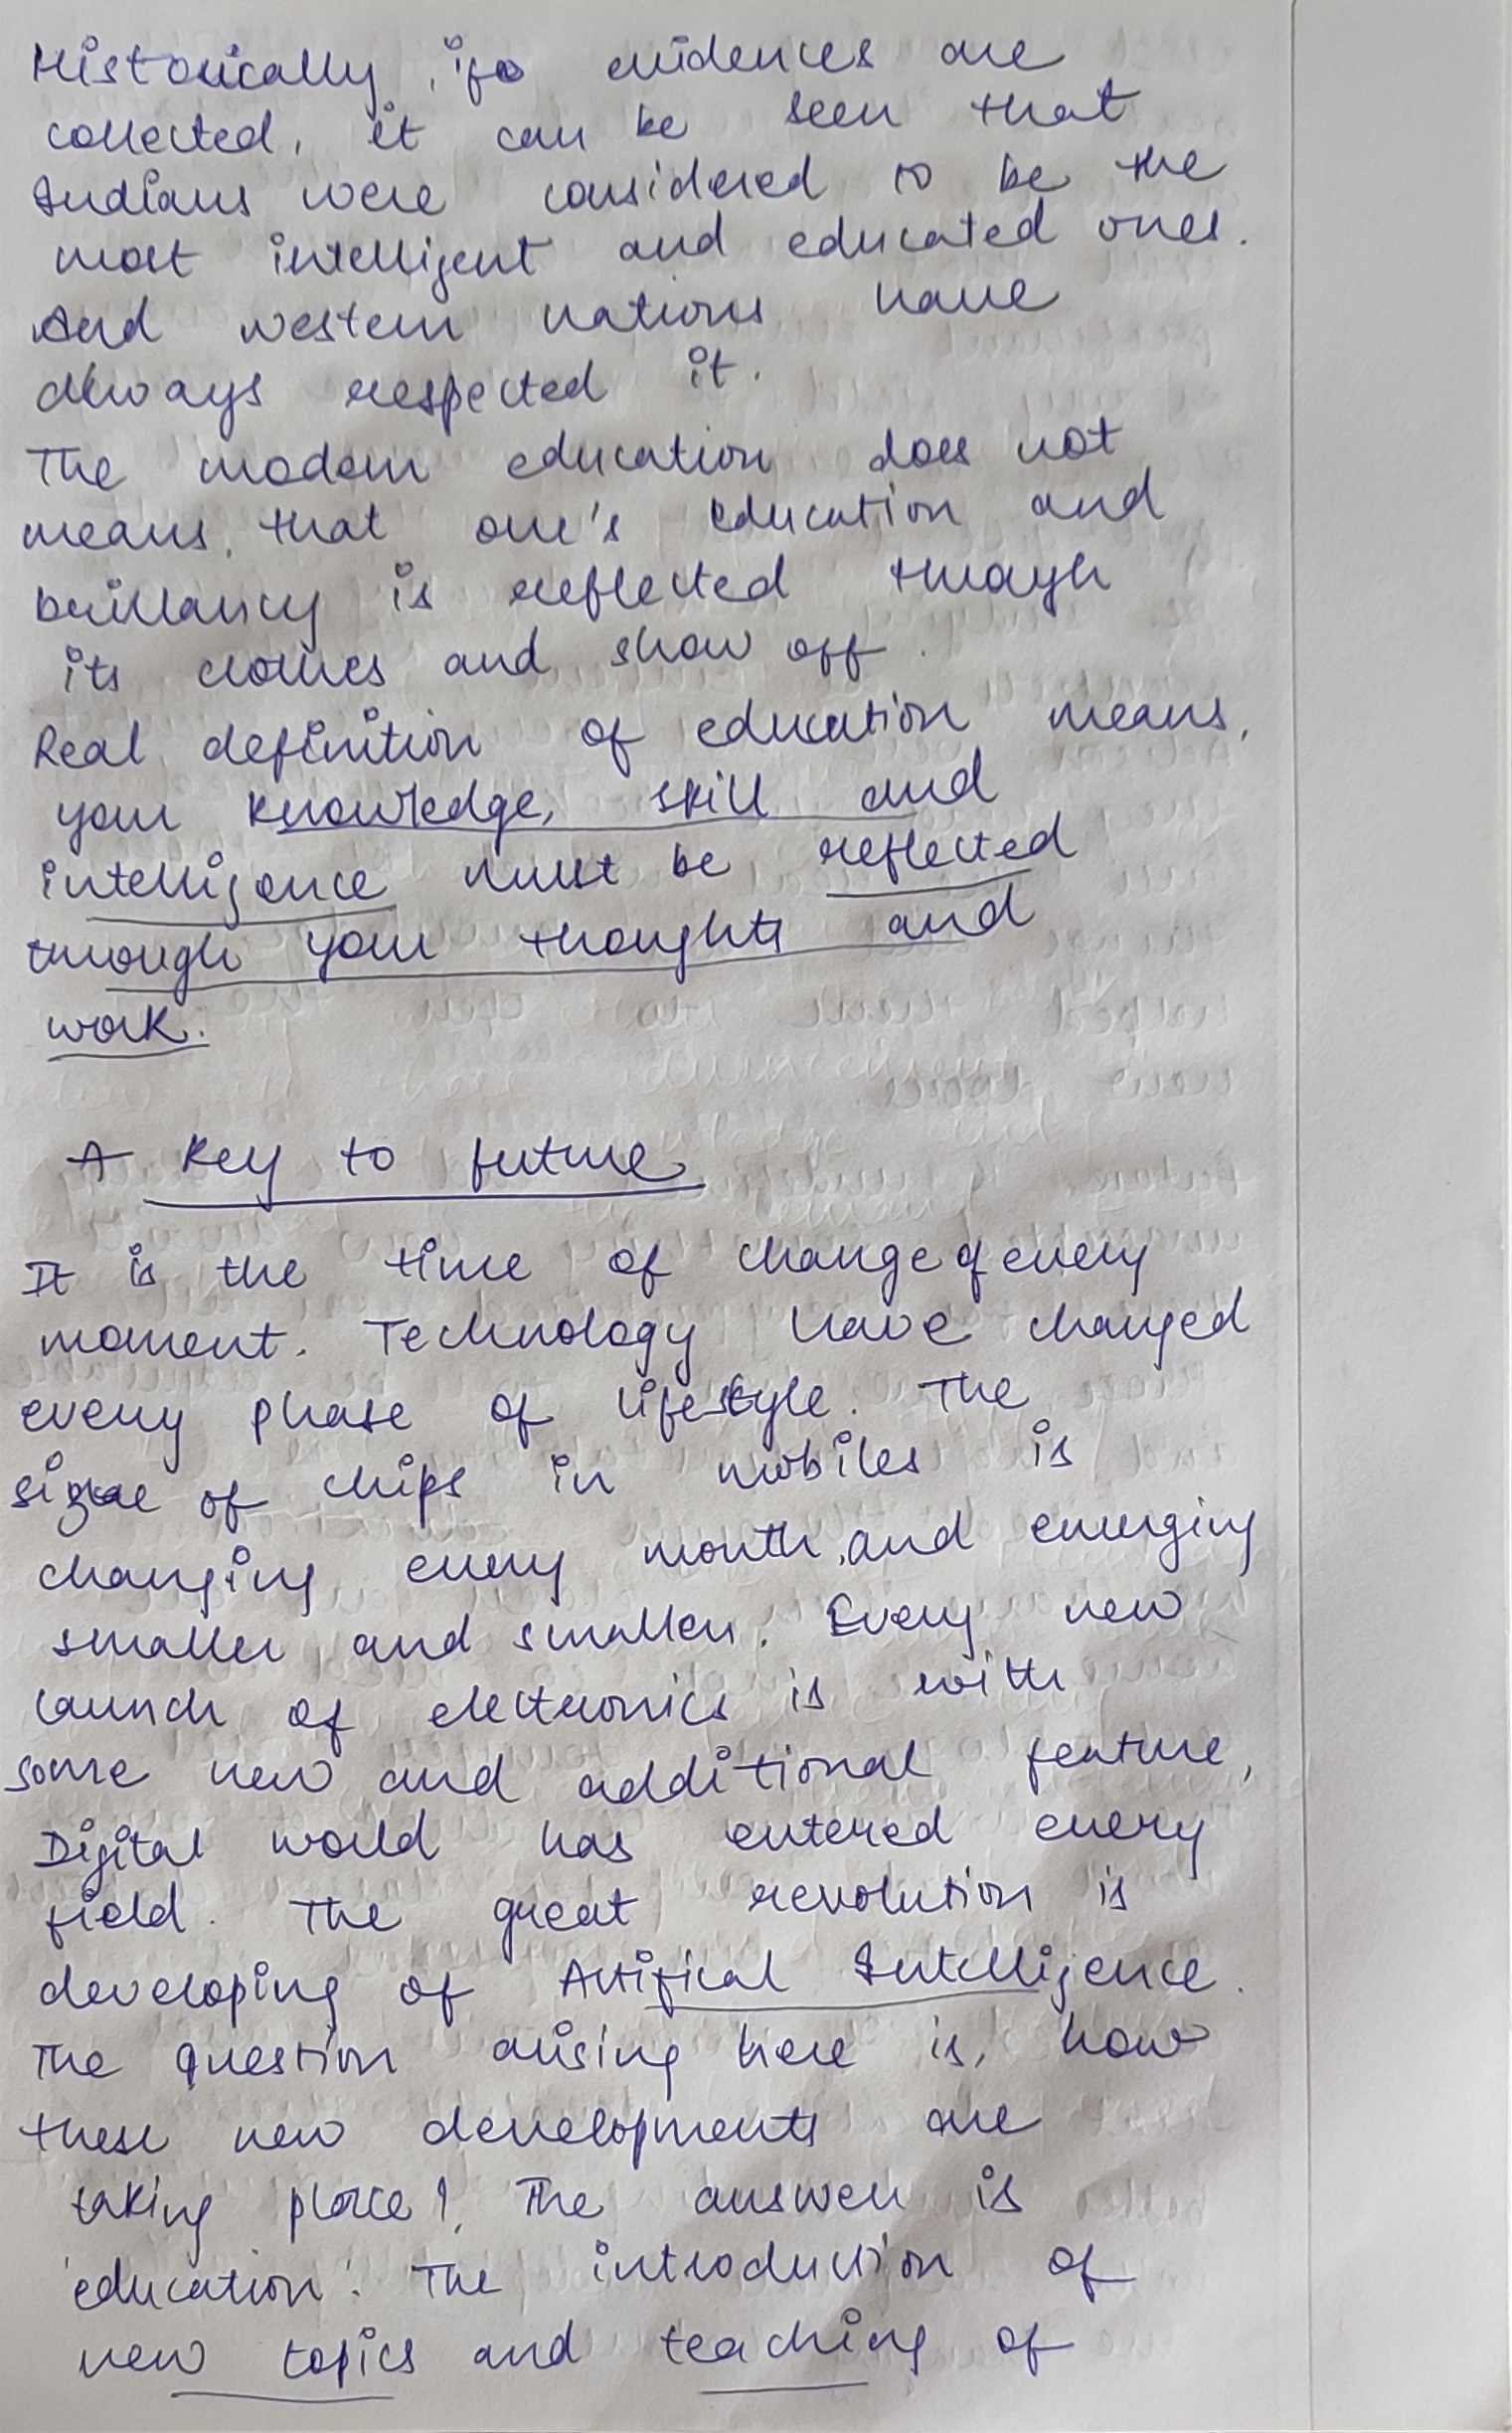 Historically, if evidences are
collected, it can be seen that
Indians were considered to be the
most intelligent and educated ones.
And western nations have
always respected it.
The modern education does not
means, that one's education and
brillancy is reflected through
its clothes and show off.
Real definition of education means,
your knowledge, skill and
intelligence must be reflected
through your thoughts and
work.
A key to future
It is the time of change of every
moment. Technology have changed
every phase of lifestyle. The
size of chips in mobiles is
changing every month, and emerging
smaller and smaller. Every new
launch of electronics is with
some new and additional feature,
Digital world has entered every
field. The great revolution is
developing of Artifical Intelligence.
The question arising here is, how
these new developments are
taking place?. The answer is
'education'. The introduction of
new topics and teaching of